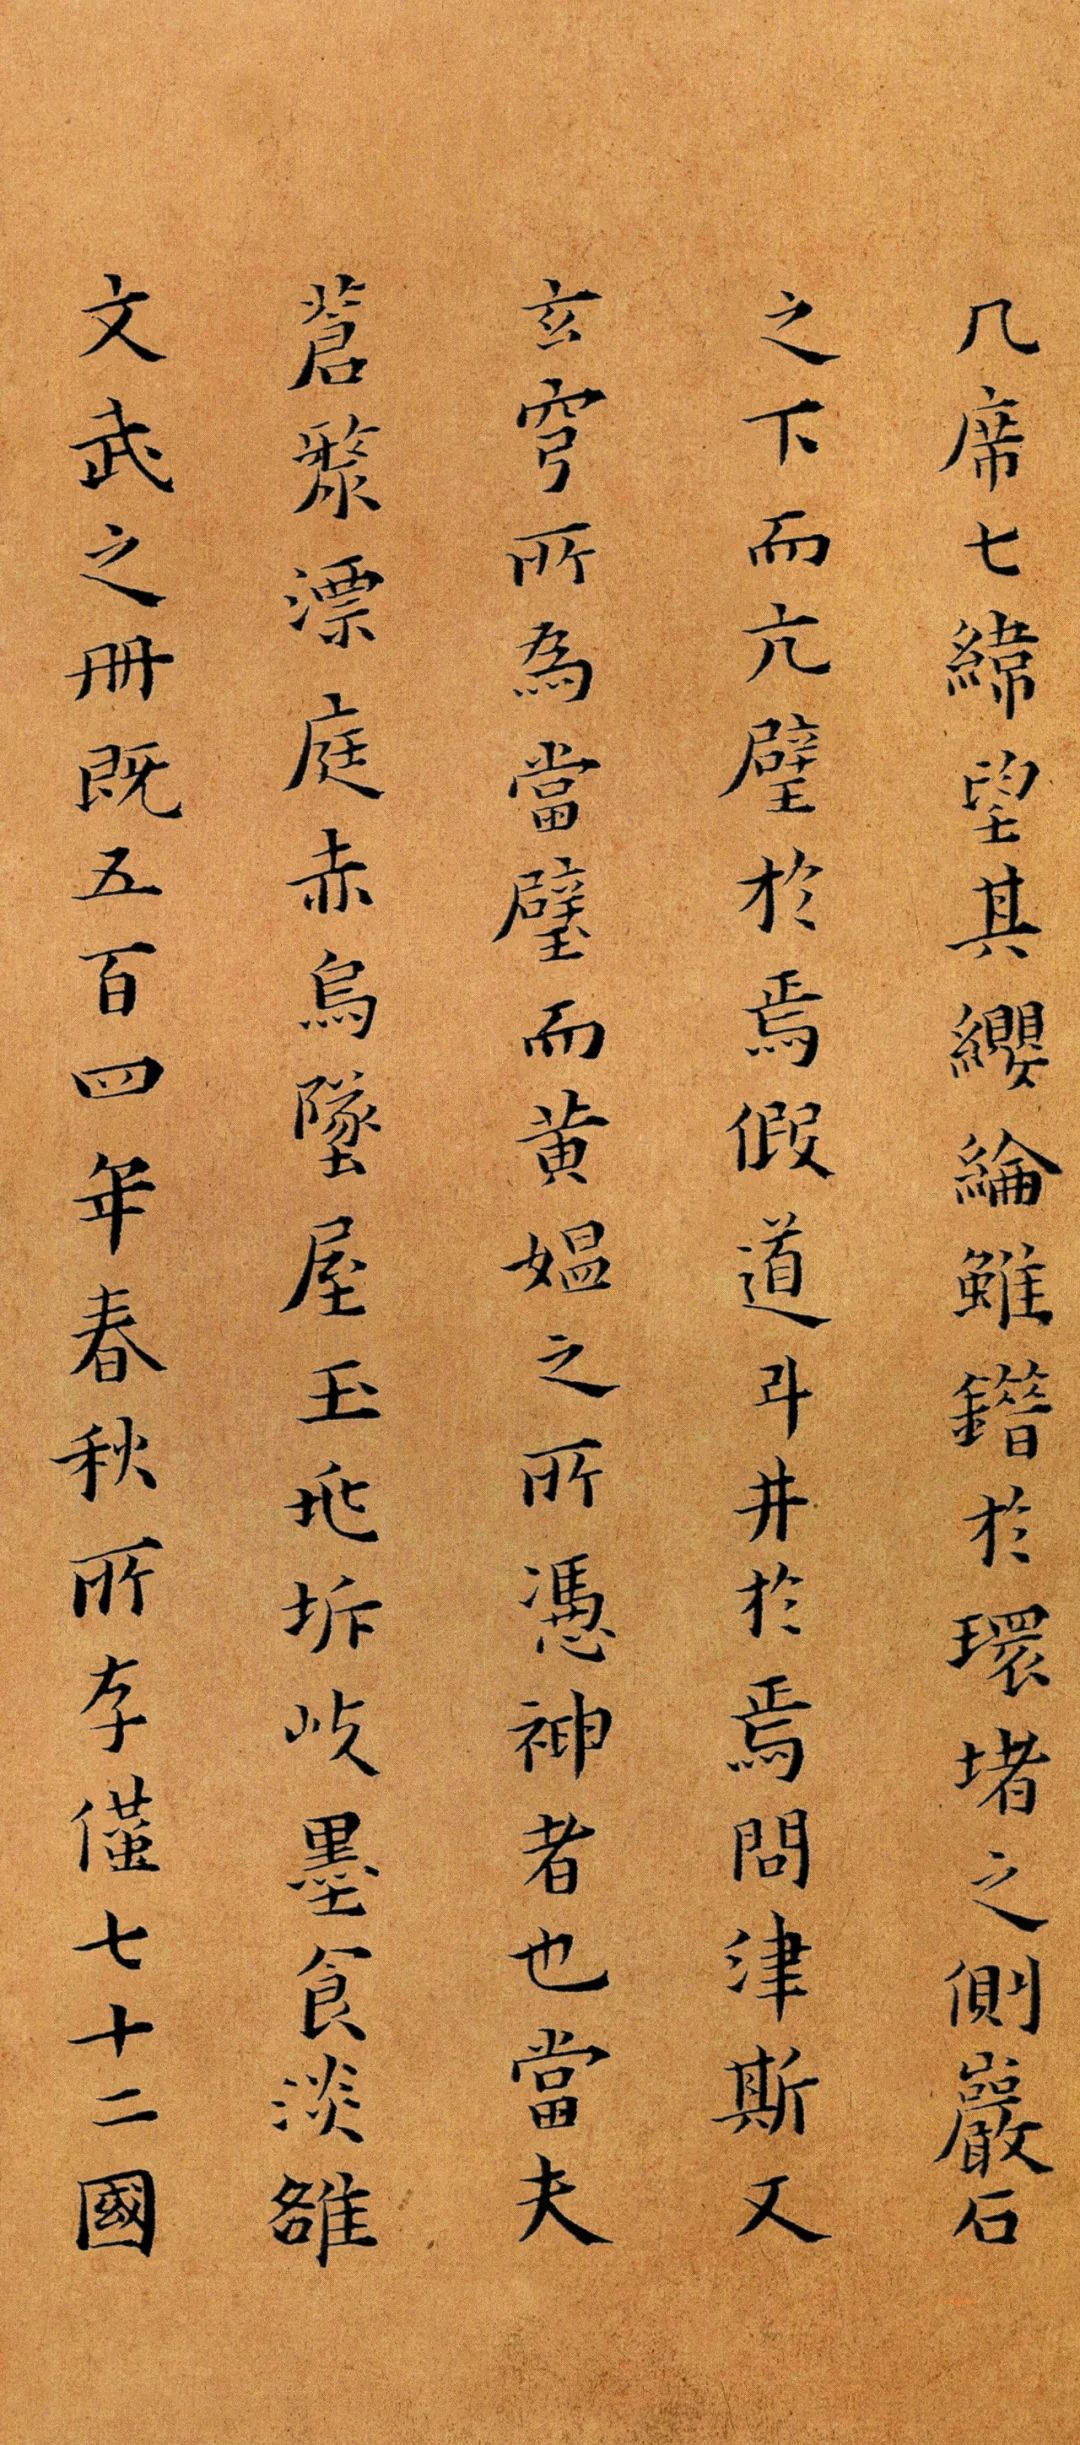 几席七緯望其纓綸雖鐟於環堵之側巖石
之下而亢璧於焉假道斗井於焉問津斯又
玄穹所為當璧而黃媼之所憑神者也當夫
蒼漦漂庭赤烏墜屋玉地坼岐墨食淡雒
文武之冊既五百四年春秋所存僅七十二國